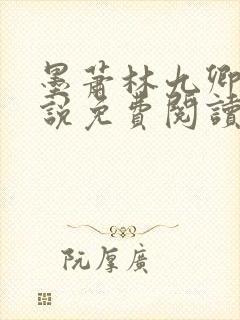 墨蕭林九卿
說免費閱讀
阮厚廣